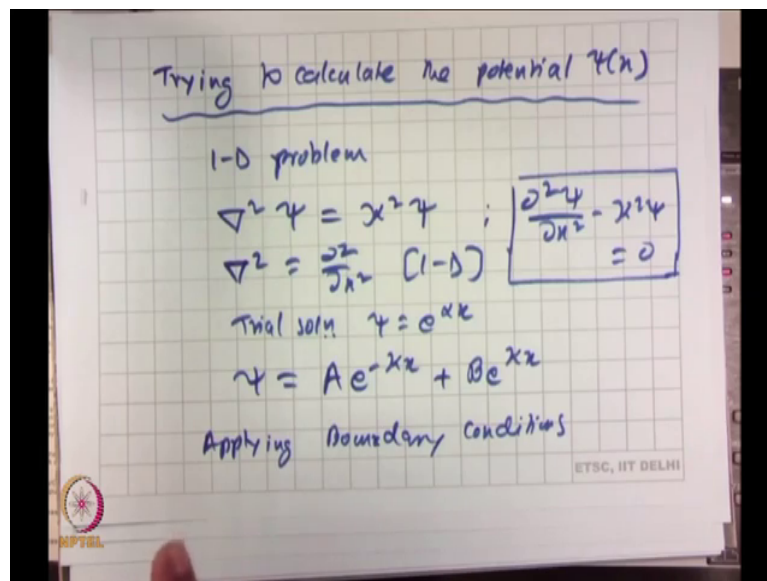 Trying to calculate the potential Ψ(x)
1-D problem
∇² Ψ = ϰ² Ψ ; ∂²Ψ/∂x² - ϰ²Ψ = 0
∇² = ∂²/∂x² (1-D)
Trial soln. Ψ = e^αx
Ψ = A e^-ϰx + B e^ϰx
Applying Boundary Conditions
ETSC, IIT DELHI
NPTEL